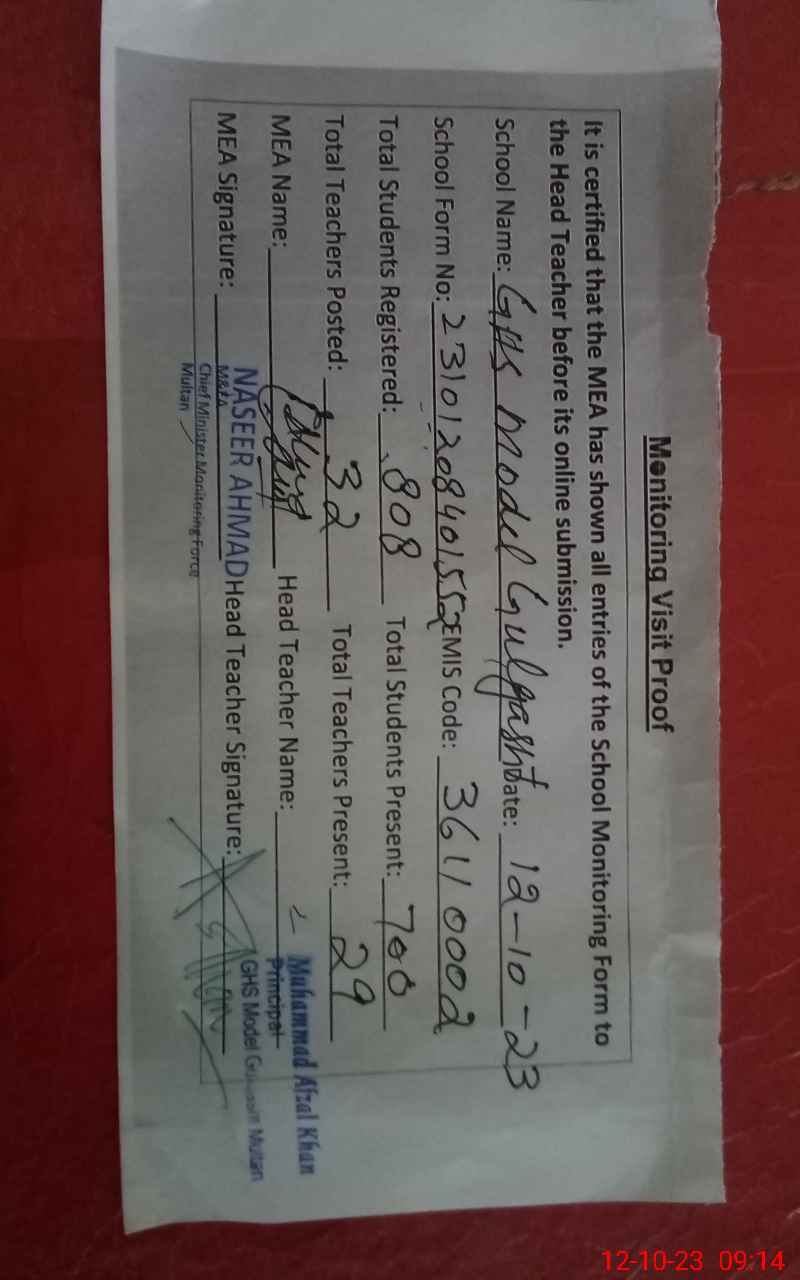 Monitoring Visit Proof
It is certified that the MEA has shown all entries of the School Monitoring Form to
the Head Teacher before its online submission.
School Name: GHS Model Gulgasht Date: 12-10-23
School Form No: 23101208401552 EMIS Code: 36110002
Total Students Registered: 808 Total Students Present: 700
Total Teachers Posted: 32 Total Teachers Present: 29
MEA Name: Head Teacher Name: Muhammad Afzal Khan
Principal
GHS Model Multan
MEA Signature: NASEER AHMAD Head Teacher Signature:
M&EA
Chief Minister Monitoring Force
Multan
12-10-23 09:14